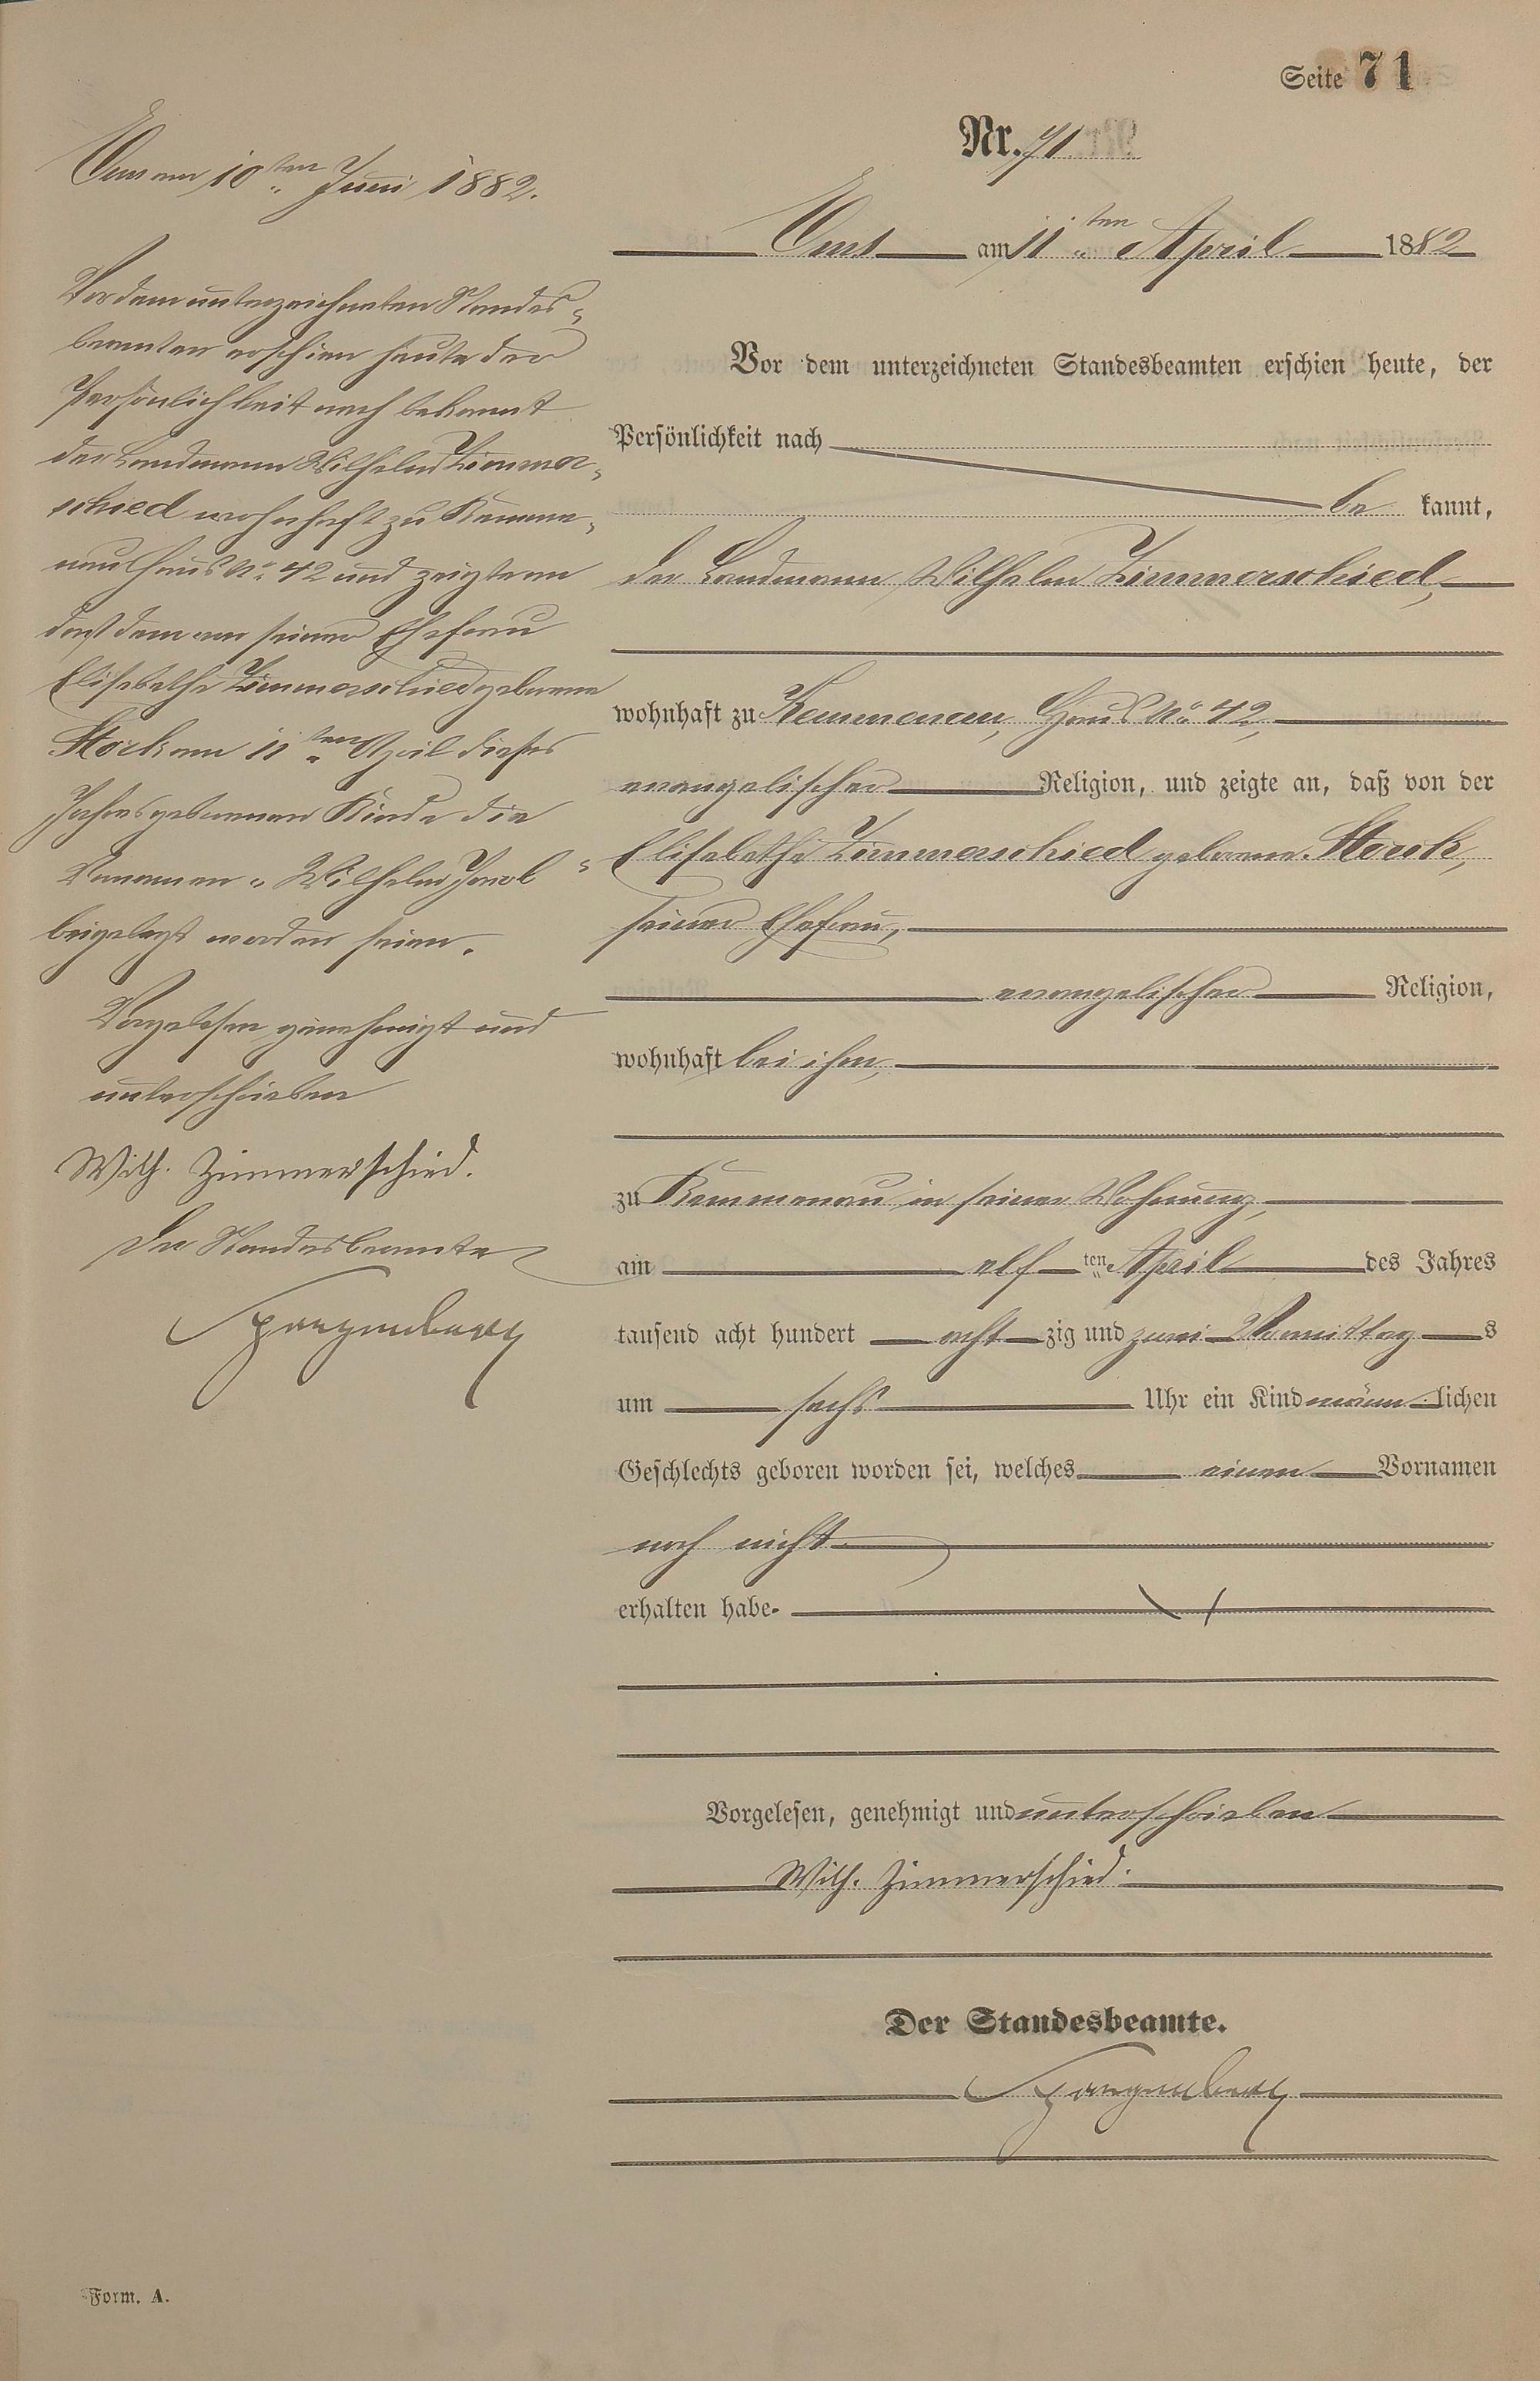 Seite 71
Nr. 71.
Ems am 11ten April 1882
Vor dem unterzeichneten Standesbeamten erschien heute, der
Persönlichkeit nach
be kannt,
der Landmann Wilhelm Zimmerschied,
wohnhaft zu Kemmenau, Haus No. 42,
evangelischer Religion, und zeigte an, daß von der
Elisabethe Zimmerschied geborene Stork,
seiner Ehefrau,
evangelischer Religion,
wohnhaft bei ihm,
zu Kemmenau in seiner Wohnung,
am elf ten April des Jahres
tausend acht hundert acht zig und zwei Vormittag s
um sechs Uhr ein Kind männ lichen
Geschlechts geboren worden sei, welches einen Vornamen
noch nicht
erhalten habe.
Vorgelesen, genehmigt und unterschrieben
Wilh. Zimmerschied.
Der Standesbeamte.
Spangenberg
Ems am 10ten Juni 1882.
Vor dem unterzeichneten Standes-
beamten erschien heute der
Persönlichkeit nach bekannt
der Landmann Wilhelm Zimmer-
schied wohnhaft zu Kemme-
nau Haus No. 42 und zeigte an
daß dem von seiner Ehefrau
Elisabethe Zimmerschied geborene
Stork am 11ten April dieses
Jahres geborenen Kinde die
Vornamen „Wilhelm Jacob“
beigelegt worden seien.
Vorgelesen genehmigt und
unterschrieben
Wilh. Zimmerschied.
Der Standesbeamte
Spangenberg
Form. A.